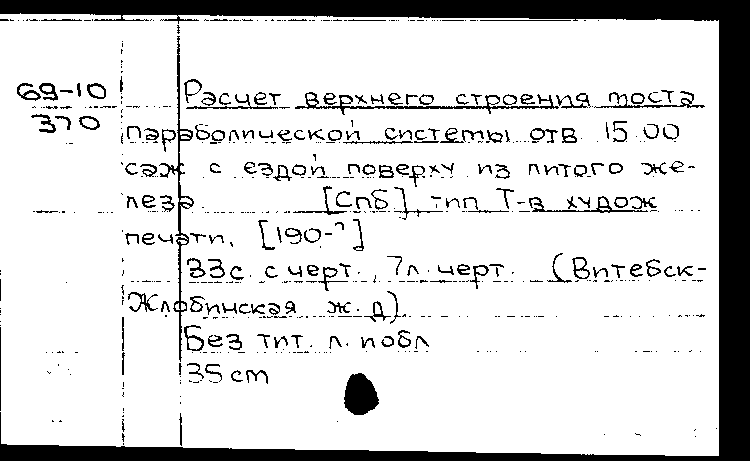 69-10
370
Расчет верхнего строения моста
параболической системы отв 15.00
саж с ездой поверху из литого же-
леза. [Спб], тип Т-ва худож
печати, [190-?]
33с. с черт., 7л. черт. (Витебск-
Жлобинская ж. д).
Без тит. л. и обл
35 cm